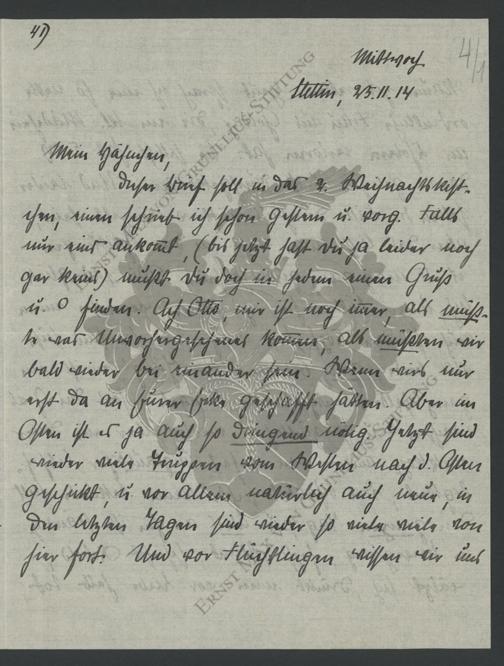 41)
4/1
Mittwoch
Stettin, 25.11.14
Mein Hähnchen,
Dieser Brief soll in das 2. Weihnachtskist-
chen, einen schrieb ich schon gestern u. vorg. Falls
nur eins ankommt, (bis jetzt hast Du ja leider noch
gar keins) mußt Du doch in jedem einen Gruß
u. O finden. Ach Otto, mir ist noch immer, als müß-
te was Unvorhergesehenes kommen, als müßten wir
bald wieder bei einander sein. Wenn wirs nur
erst da an Eurer Ecke geschafft hätten. Aber im
Osten ist es ja auch so dringend nötig. Jetzt sind
wieder viele Truppen vom Westen nach d. Osten
geschickt, u. vor allem natürlich auch neue, in
den letzten Tagen sind wieder so viele viele von
hier fort. Und vor Flüchtlingen wissen wir uns
ERNST VON GRUNELIUS-STIFTUNG
ERNST MAX VON GRUNELIUS-STIFTUNG